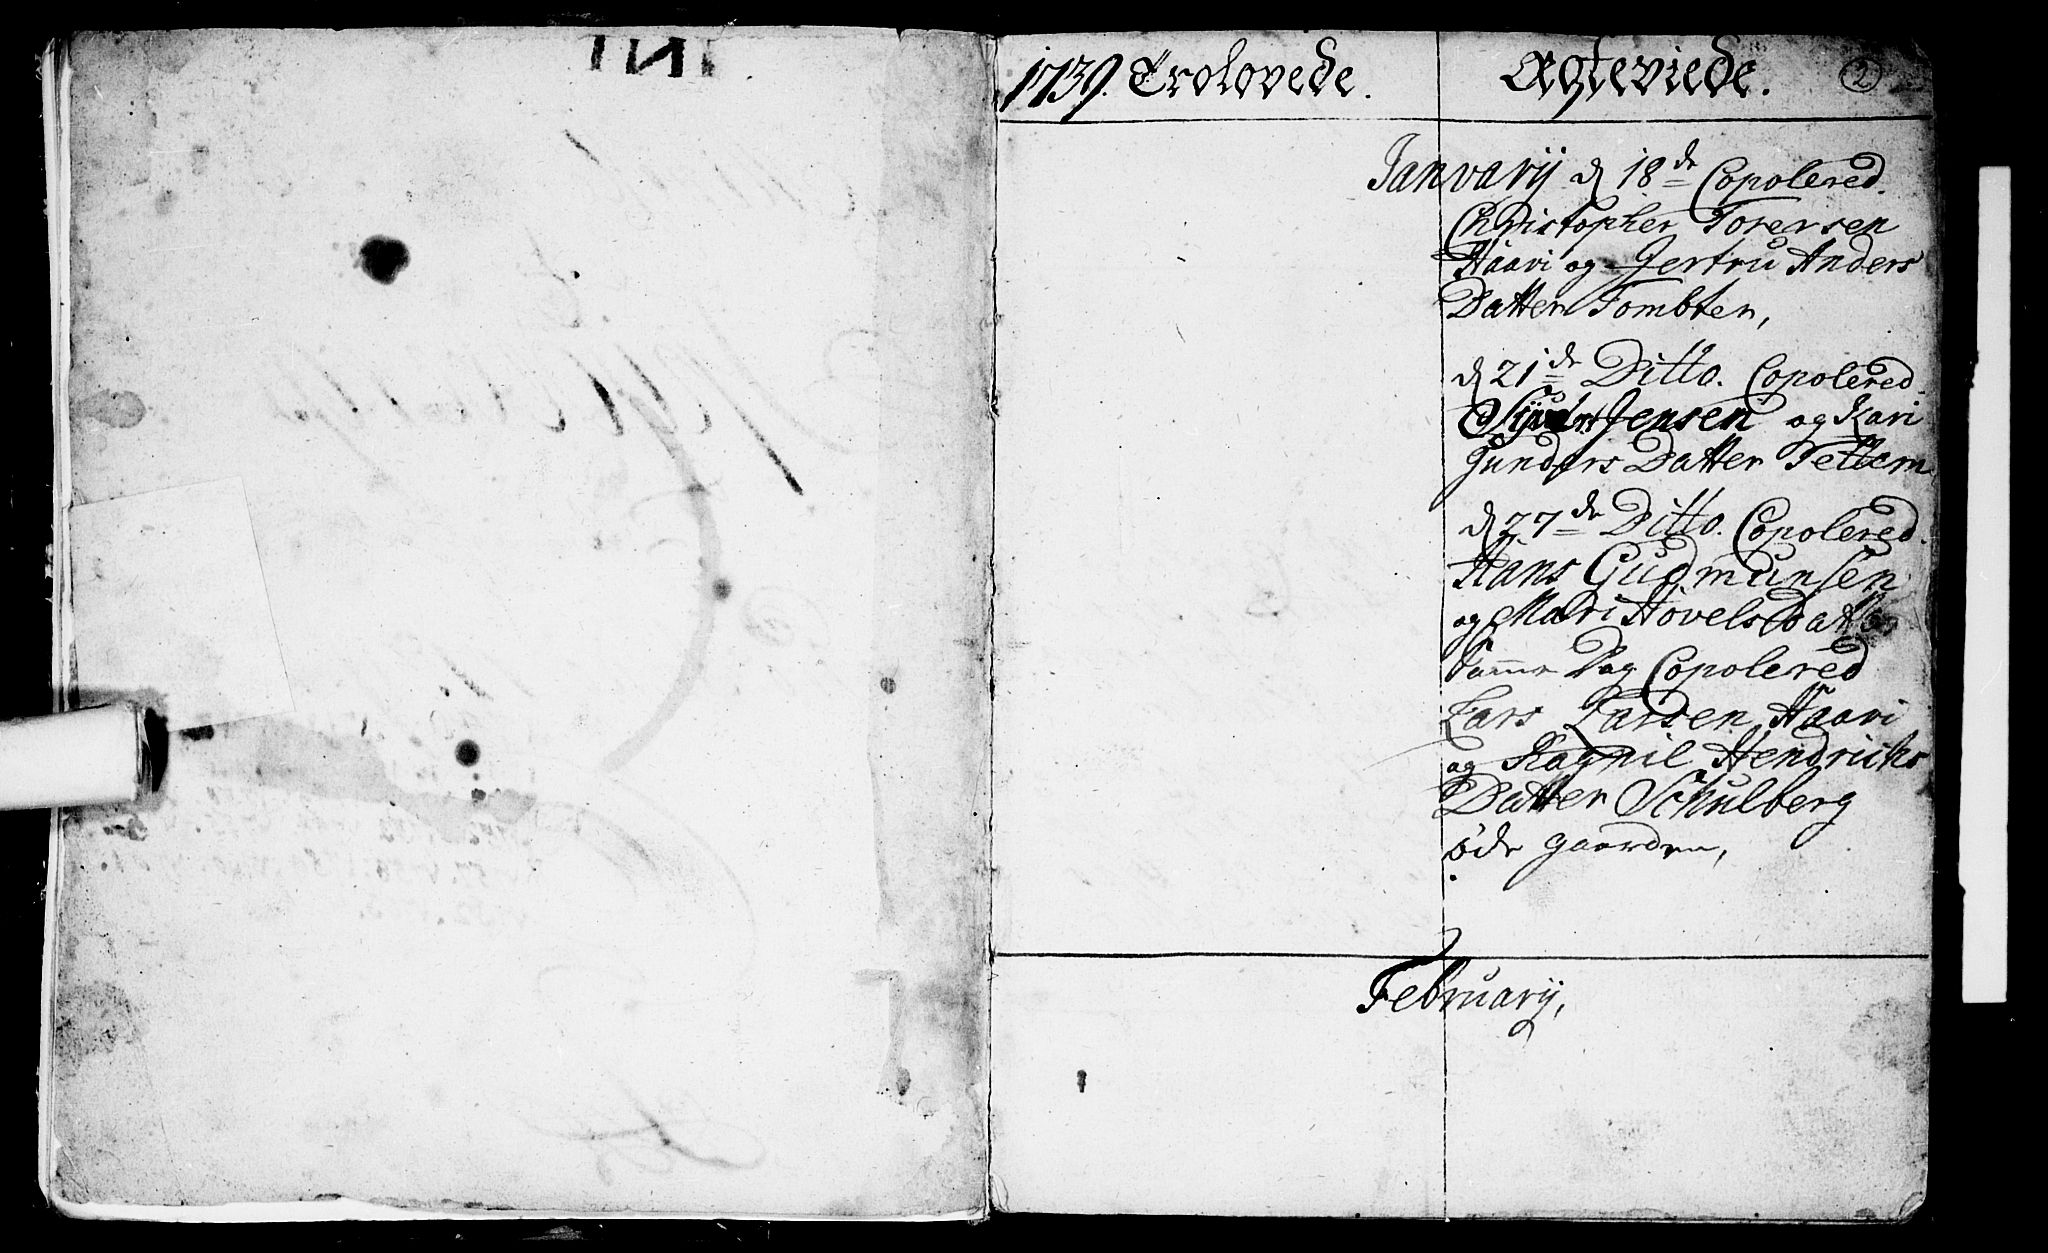 1739. Trolovede.
Ægteviede. 2
Januarij d 18de Copolered.
Christopher Torersen
Haavi og Jertru Anders
Datter Tombter,
d 21de Ditto. Copolered.
Jensen og Kari
Gunders Datter Tettem
d 27de Ditto. Copolered.
Hans Gudmunsen
og Mari Hovels Datter
Samme Dag Copolered
Lars Larsen Haavi
og Ragnil Hendrichs
Datter Schulberg
øde gaarden,
Februarij,